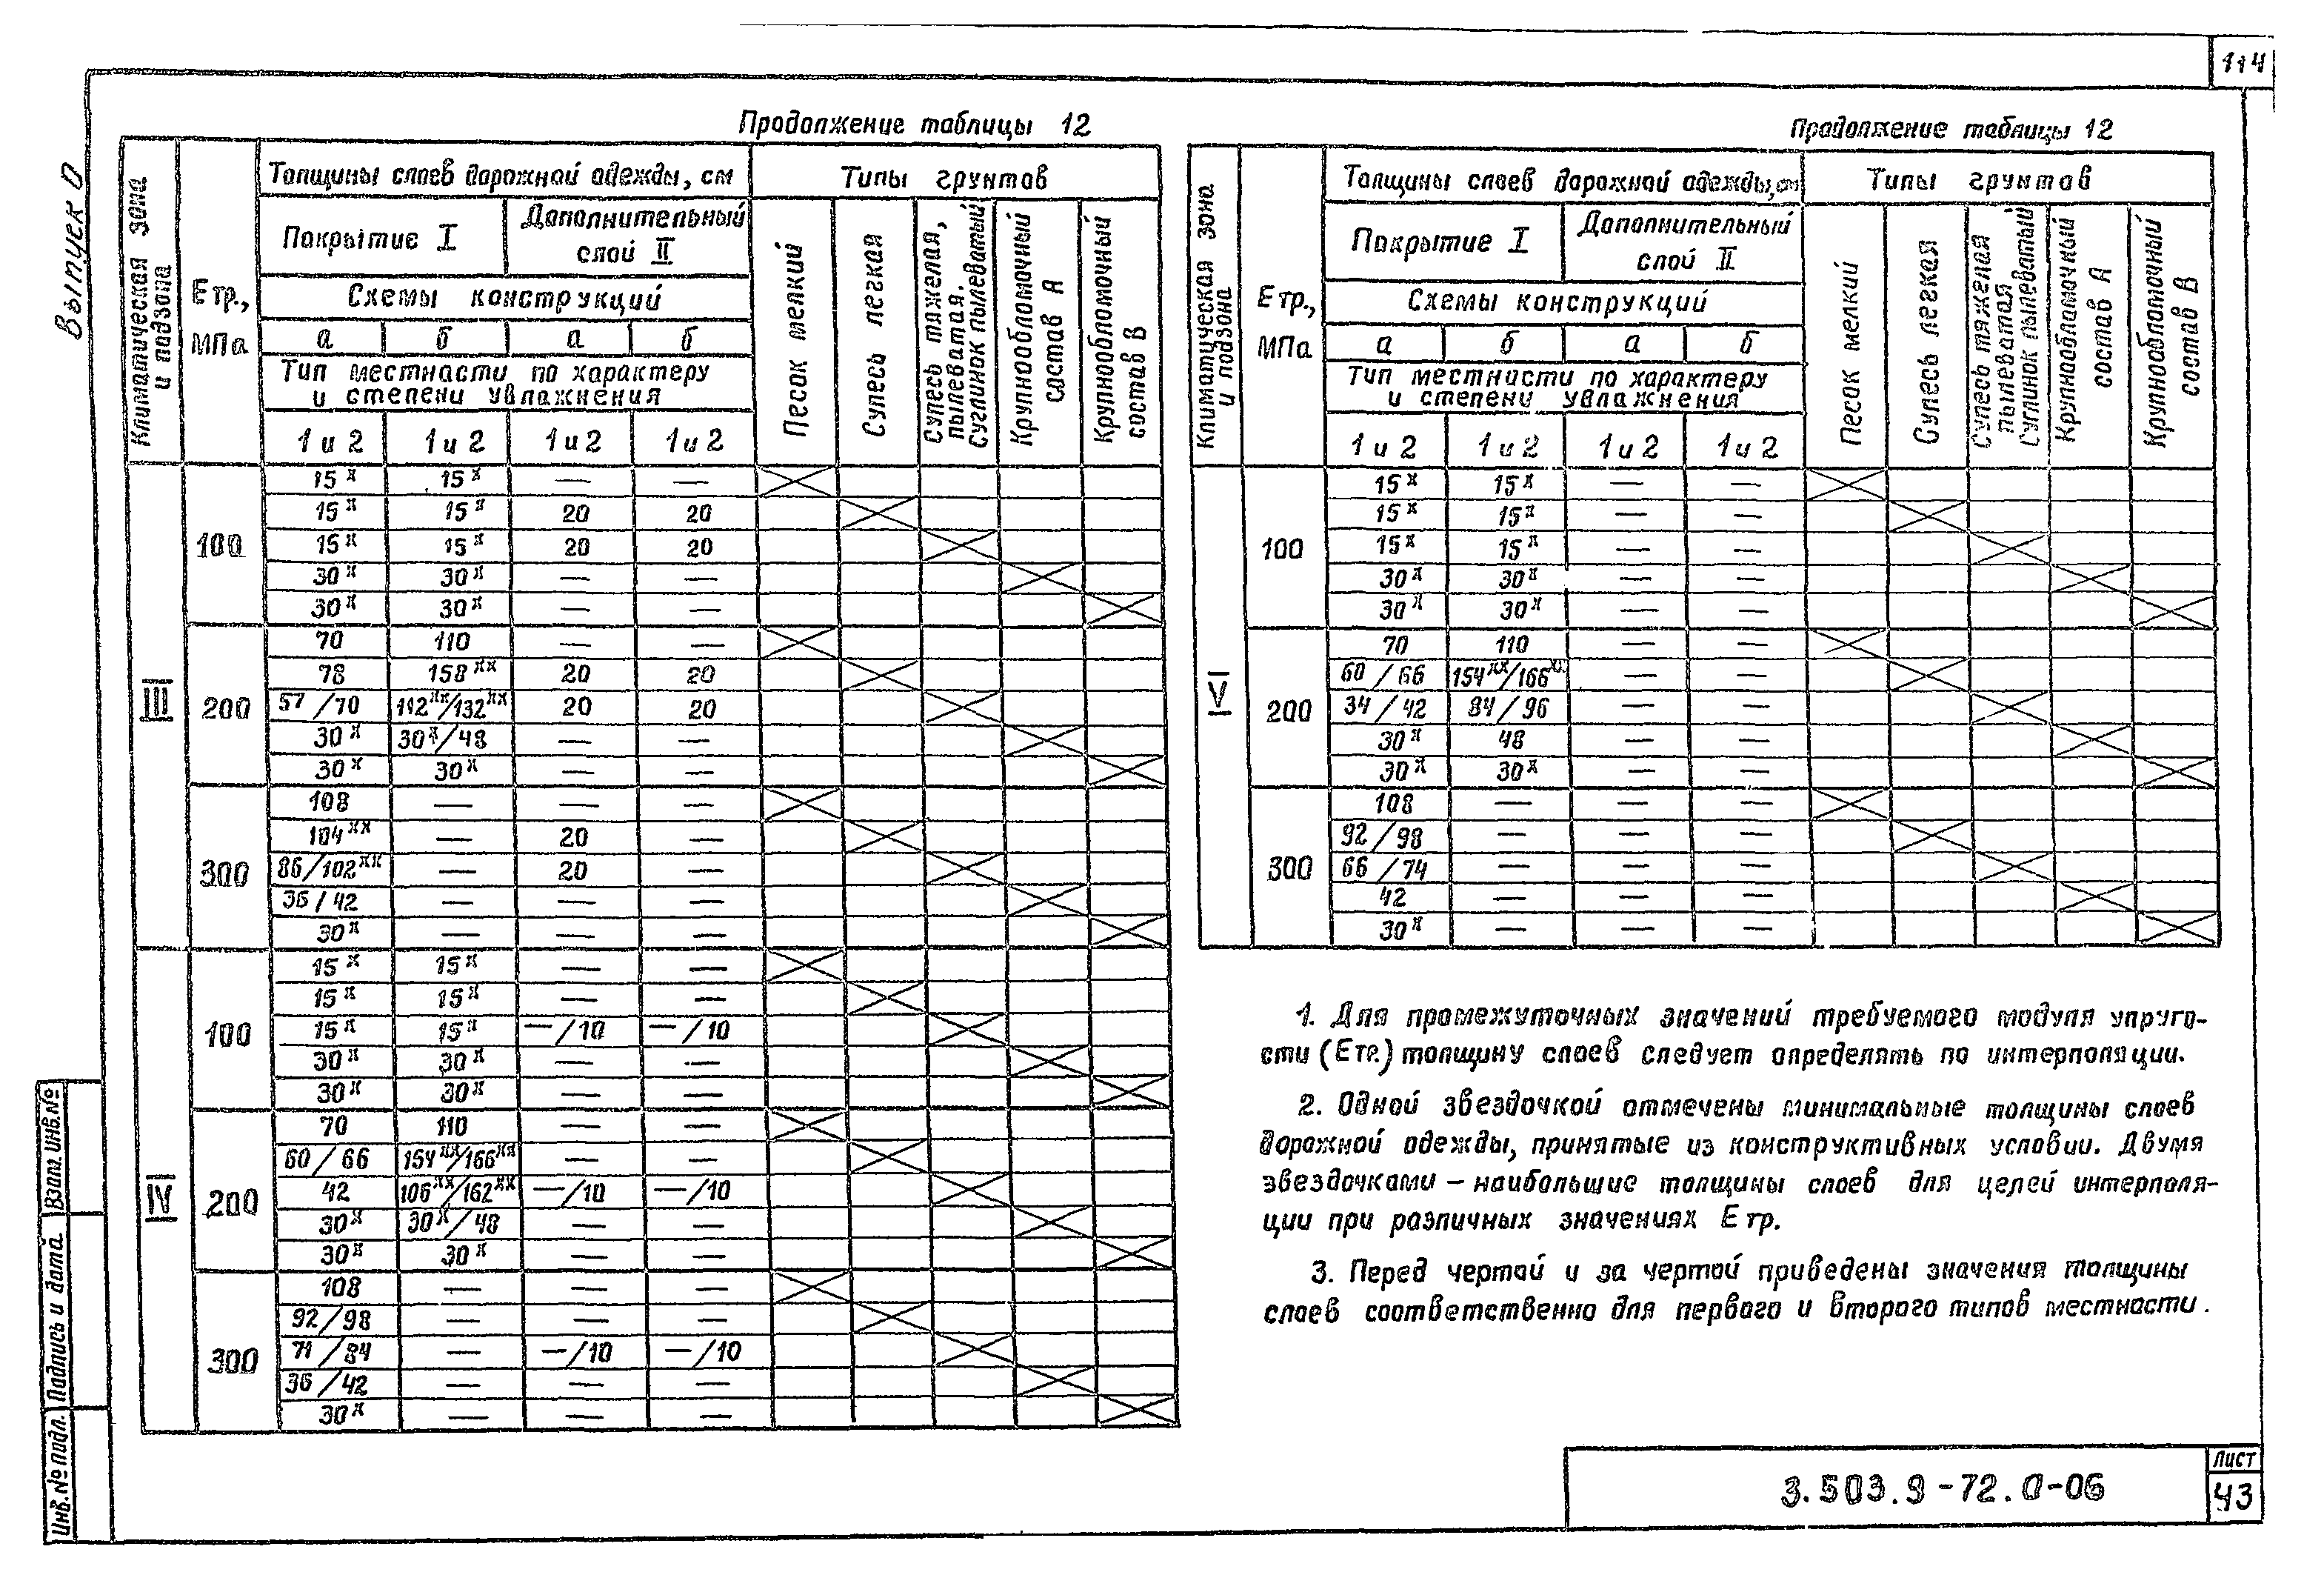 114
Выпуск 0
Продолжение таблицы 12
Климатическая зона и подзона
Е тр., МПа
Толщины слоев дорожной одежды, см
Типы грунтов
Покрытие I
Дополнительный слой II
Схемы конструкций
а б а б
Тип местности по характеру
и степени увлажнения
1 и 2 1 и 2 1 и 2 1 и 2
Песок мелкий
Супесь легкая
Супесь тяжелая, пылеватая. Суглинок пылеватый
Крупнообломочный состав А
Крупнообломочный состав В
III
100
15ˣ 15ˣ — —
15ˣ 15ˣ 20 20
15ˣ 15ˣ 20 20
30ˣ 30ˣ — —
30ˣ 30ˣ — —
200
70 110 — —
78 158ˣˣ 20 20
57/70 112ˣˣ/132ˣˣ 20 20
30ˣ 30ˣ/48 — —
30ˣ 30ˣ — —
300
108 — — —
104ˣˣ — 20 —
86/102ˣˣ — 20 —
36/42 — — —
30ˣ — — —
IV
100
15ˣ 15ˣ — —
15ˣ 15ˣ — —
15ˣ 15ˣ —/10 —/10
30ˣ 30ˣ — —
30ˣ 30ˣ — —
200
70 110 — —
60/66 154ˣˣ/166ˣˣ — —
42 106ˣˣ/162ˣˣ —/10 —/10
30ˣ 30ˣ/48 — —
30ˣ 30ˣ — —
300
108 — — —
92/98 — — —
71/84 — —/10 —/10
36/42 — — —
30ˣ — — —
Продолжение таблицы 12
Климатическая зона и подзона
Е тр., МПа
Толщины слоев дорожной одежды, см
Типы грунтов
Покрытие I
Дополнительный слой II
Схемы конструкций
а б а б
Тип местности по характеру
и степени увлажнения
1 и 2 1 и 2 1 и 2 1 и 2
Песок мелкий
Супесь легкая
Супесь тяжелая пылеватая Суглинок пылеватый
Крупнообломочный состав А
Крупнообломочный состав В
V
100
15ˣ 15ˣ — —
15ˣ 15ˣ — —
15ˣ 15ˣ — —
30ˣ 30ˣ — —
30ˣ 30ˣ — —
200
70 110 — —
60/66 154ˣˣ/166ˣˣ — —
34/42 84/96 — —
30ˣ 48 — —
30ˣ 30ˣ — —
300
108 — — —
92/98 — — —
66/74 — — —
42 — — —
30ˣ — — —
1. Для промежуточных значений требуемого модуля упруго-
сти (Етр.) толщину слоев следует определять по интерполяции.
2. Одной звездочкой отмечены минимальные толщины слоев
дорожной одежды, принятые из конструктивных условии. Двумя
звездочками – наибольшие толщины слоев для целей интерполя-
ции при различных значениях Е тр.
3. Перед чертой и за чертой приведены значения толщины
слоев соответственно для первого и второго типов местности.
Инв.№ подл. Подпись и дата Взам.инв.№
3.503.9-72.0-06
Лист
43